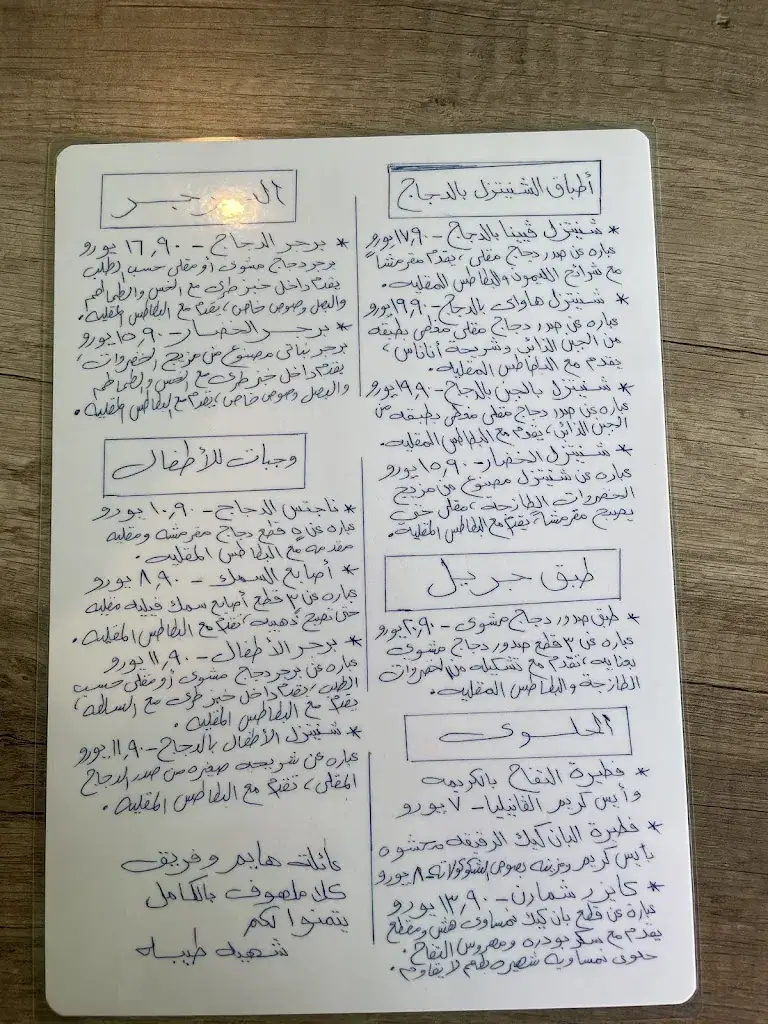 أطباق الشنيتزل بالدجاج
* شنيتزل ڤيينا بالدجاج - ١٧,٩٠ يورو
عباره عن صدر دجاج مقلى، يقدم مقرمشاً
مع شرائح الليمون والبطاطس المقليه.
* شنيتزل هاواى بالدجاج - ١٩,٩٠ يورو
عباره عن صدر دجاج مقلى مغطى بطبقه
من الجبن الذائب وشريحة أناناس،
يقدم مع البطاطس المقليه.
* شنيتزل بالجبن بالدجاج - ١٩,٩٠ يورو
عباره عن صدر دجاج مقلى مغطى بطبقه من
الجبن الذائب، يقدم مع البطاطس المقليه.
* شنيتزل الخضار - ١٥,٩٠ يورو
عباره عن شنيتزل مصنوع من مزيج
الخضروات الطازجه، مقلى حتى
يصبح مقرمشاً يقدم مع البطاطس المقليه.
طبق جريل
* طبق صدور دجاج مشوى - ٢٠,٩٠ يورو
عباره عن ٣ قطع صدور دجاج مشوى
بعنايه، تقدم مع تشكيله من الخضروات
الطازجة والبطاطس المقليه.
الحلوى
* فطيرة التفاح بالكريمه
وأيس كريم الفانيليا - ٧ يورو
* فطيرة البان كيك الرقيقه محشوه
بأيس كريم ومزينه بصوص الشوكولاته - ٨ يورو
* كايزر شمارن - ١٣,٩٠ يورو
عبارة عن قطع بان كيك نمساوى هش ومقطع
يقدم مع سكر بودره ومهروس التفاح.
حلوى نمساوية شهيره بطعم لا يقاوم.
البرجر
* برجر الدجاج - ١٦,٩٠ يورو
برجر دجاج مشوى أو مقلى حسب الطلب
يقدم داخل خبز طرى مع الخس والطماطم
والبصل وصوص خاص، يقدم مع البطاطس المقليه.
* برجر الخضار - ١٥,٩٠ يورو
برجر نباتى مصنوع من مزيج الخضروات،
يقدم داخل خبز طرى مع الخس والطماطم
والبصل وصوص خاص، يقدم مع البطاطس المقليه.
وجبات للأطفال
* ناجتس الدجاج - ١٠,٩٠ يورو
عباره عن ٥ قطع دجاج مقرمشه ومقليه
مقدمه مع البطاطس المقليه.
* أصابع السمك - ٨,٩٠ يورو
عباره عن ٣ قطع أصابع سمك فيليه مقليه
حتى تصبح ذهبيه، تقدم مع البطاطس المقليه.
* برجر الأطفال - ١١,٩٠ يورو
عباره عن برجر دجاج مشوى أو مقلى حسب
الطلب، يقدم داخل خبز طرى مع السلطه،
يقدم مع البطاطس المقليه.
* شنيتزل الأطفال بالدجاج - ١١,٩٠ يورو
عباره عن شريحه صغيره من صدر الدجاج
المقلى، تقدم مع البطاطس المقليه.
عائلة هايم وفريق
كلاملهوف بالكامل
يتمنوا لكم
شهيه طيبه